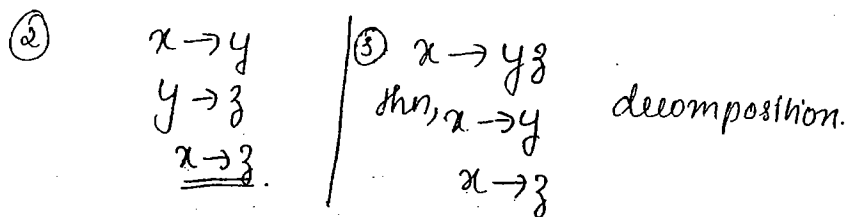 ② x → y
y → z
x → z.
③ x → yz
thn, x → y decomposition.
x → z